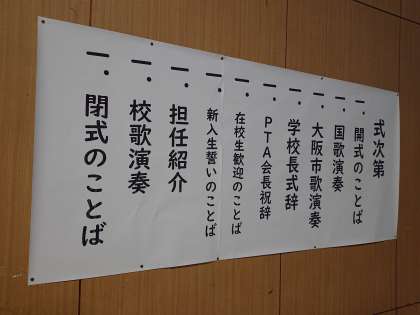 式次第
一．開式のことば
一．国歌演奏
一．大阪市歌演奏
一．学校長式辞
一．ＰＴＡ会長祝辞
一．在校生歓迎のことば
一．新入生誓いのことば
一．担任紹介
一．校歌演奏
一．閉式のことば